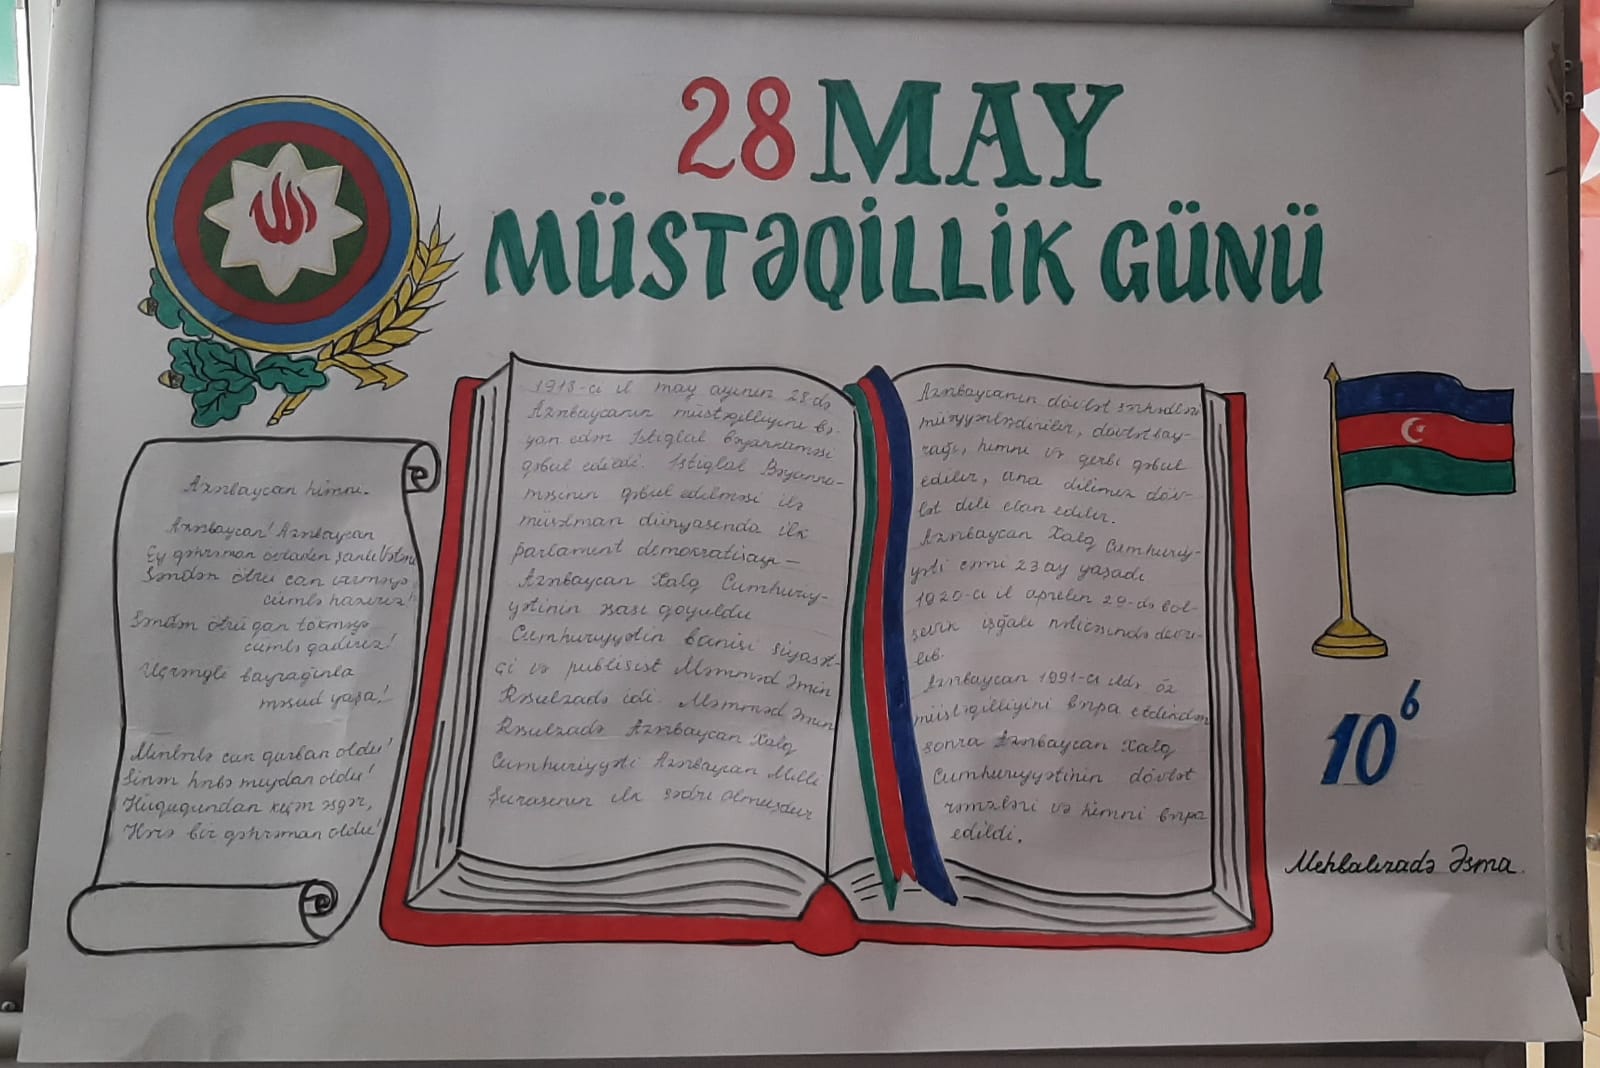 28 MAY
MÜSTƏQİLLİK GÜNÜ
Azərbaycan himni.
Azərbaycan! Azərbaycan
Ey qəhrəman övladın şanlı Vətəni
Səndən ötrü can verməyə
cümlə hazırız!
Səndən ötrü qan tökməyə
cümlə qadiriz!
Üçrəngli bayrağınla
məsud yaşa!
Minlərlə can qurban oldu!
Sinən hərbə meydan oldu!
Hüququndan keçən əsgər,
Hərə bir qəhrəman oldu!
1918-ci il may ayının 28-də
Azərbaycanın müstəqilliyini bə-
yan edən İstiqlal bəyannaməsi
qəbul edildi. İstiqlal Bəyanna-
məsinin qəbul edilməsi ilə
müsəlman dünyasında ilk
parlament demokratiyası —
Azərbaycan Xalq Cumhuriy-
yətinin əsası qoyuldu
Cumhuriyyətin banisi siyasət-
çi və publisist Məmməd Əmin
Rəsulzadə idi. Məmməd Əmin
Rəsulzadə Azərbaycan Xalq
Cumhuriyyəti Azərbaycan Milli
Şurasının ilk sədri olmuşdur
Azərbaycanın dövlət sərhədləri
müəyyənləşdirilir, dövlət bay-
rağı, himni və gerbi qəbul
edilir, ana dilimiz döv-
lət dili elan edilir.
Azərbaycan Xalq Cumhuriy-
yəti cəmi 23 ay yaşadı
1920-ci il aprelin 29-də bol-
şevik işğalı nəticəsində devri-
lib.
Azərbaycan 1991-ci ildə öz
müstəqilliyini bərpa etdindən
sonra Azərbaycan Xalq
Cumhuriyyətinin dövlət
rəmzləri və himni bərpa
edildi.
10⁶
Mehbalızadə Əsma.